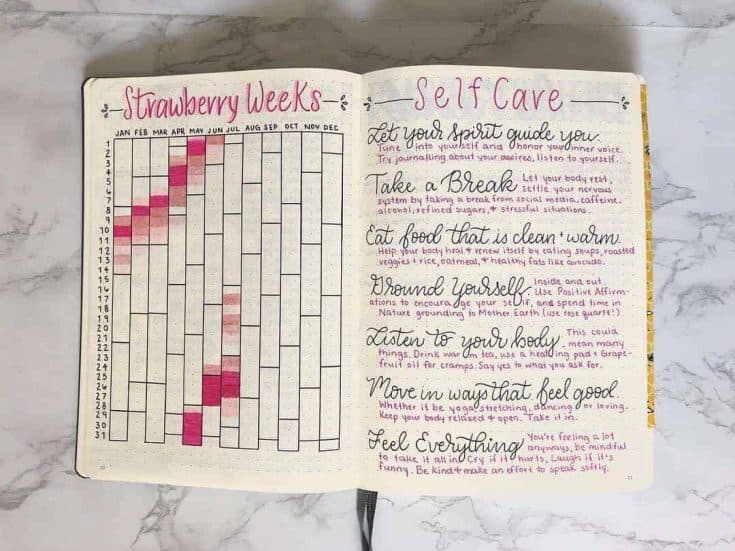 Strawberry Weeks
JAN FEB MAR APR MAY JUN JUL AUG SEP OCT NOV DEC
1
2
3
4
5
6
7
8
9
10
11
12
13
14
15
16
17
18
19
20
21
22
23
24
25
26
27
28
29
30
31
Self Care
Let your spirit guide you.
Tune into yourself and honor your inner voice.
Try journalling about your desires, listen to yourself.
Take a Break Let your body rest,
settle your nervous
system by taking a break from social media, caffeine,
alcohol, refined sugars, + stressful situations.
Eat food that is clean + warm.
Help your body heal + renew itself by eating soups, roasted
veggies + rice, oatmeal, + healthy fats like avocado.
Ground Yourself. Inside and out.
Use Positive Affirm-
ations to encourage your self, and spend time in
Nature grounding to Mother Earth (use rose quartz!)
Listen to your body. This could
mean many
things. Drink warm tea, use a heating pad + Grape-
fruit oil for cramps. Say yes to what you ask for.
Move in ways that feel good.
Whether it be yoga, stretching, dancing or loving.
Keep your body relaxed + open. Take it in.
Feel Everything You're feeling a lot
anyways, be mindful
to take it all in. Cry if it hurts, Laugh if it's
funny. Be kind + make an effort to speak softly.